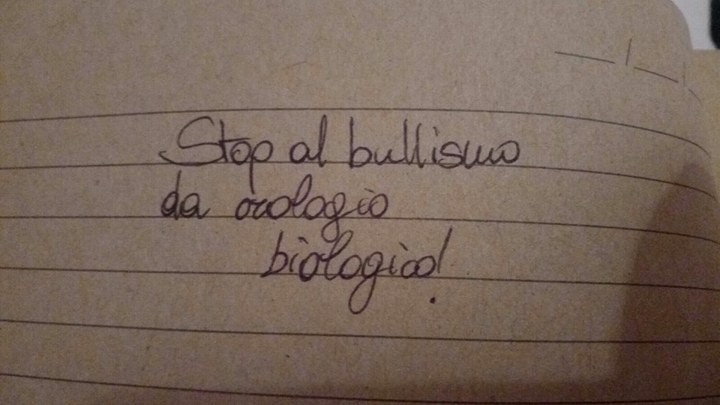 Stop al bullismo
da orologio
biologico!